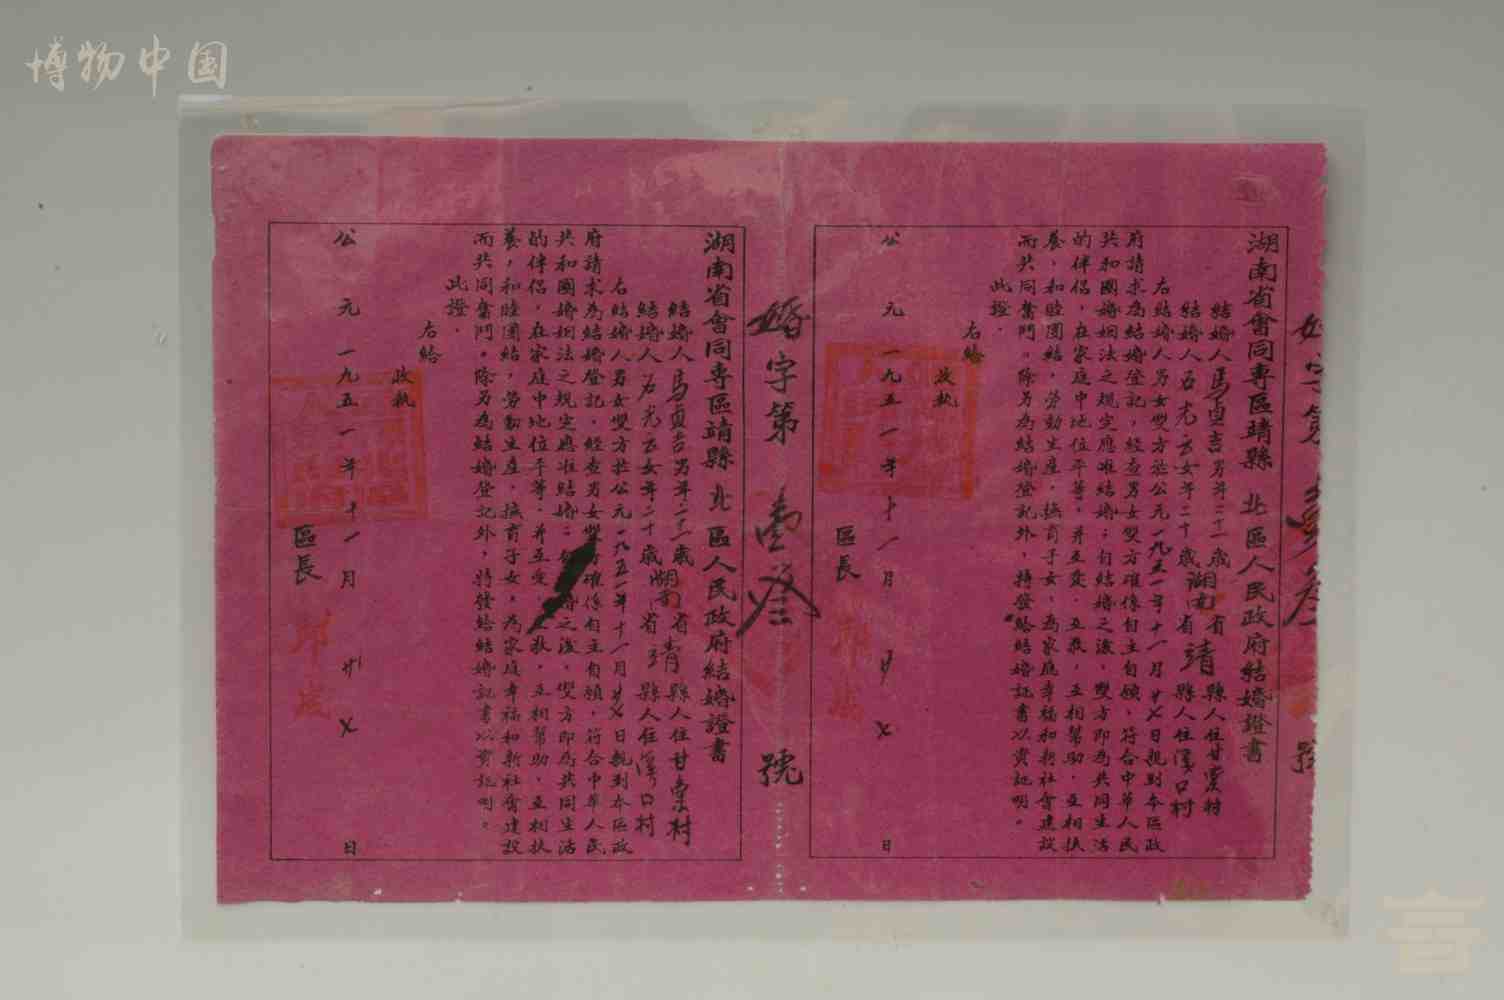 博物中国
湖南省會同專區靖縣 北區人民政府結婚證書
結婚人馬貞吉男年二十二歲湖南省靖縣人住甘棠村
結婚人石光玉女年二十歲湖南省靖縣人住溪口村
右結婚人男女雙方於公元一九五一年十一月廿七日親到本區政
府請求為結婚登記，經查男女雙方確係自主自願，符合中華人民
共和國婚姻法之規定應准結婚；自結婚之後，雙方即為共同生活
的伴侶，在家庭中地位平等，并互愛，互敬，互相幫助，互相扶
養，和睦團結，勞動生產，撫育子女，為家庭幸福和新社會建設
而共同奮鬥。除另為結婚登記外，特發給結婚証書以資証明。
此證．
右給
收執
公元一九五一年十一月廿七日
區長
婚字第 壹叁 號
湖南省會同專區靖縣 北區人民政府結婚證書
結婚人馬貞吉男年二十二歲湖南省靖縣人住甘棠村
結婚人石光玉女年二十歲湖南省靖縣人住溪口村
右結婚人男女雙方於公元一九五一年十一月廿七日親到本區政
府請求為結婚登記，經查男女雙方確係自主自願，符合中華人民
共和國婚姻法之規定應准結婚；自結婚之後，雙方即為共同生活
的伴侶，在家庭中地位平等，并互愛，互敬，互相幫助，互相扶
養，和睦團結，勞動生產，撫育子女，為家庭幸福和新社會建設
而共同奮鬥。除另為結婚登記外，特發給結婚証書以資証明。
此證．
右給
收執
公元一九五一年十一月廿七日
區長